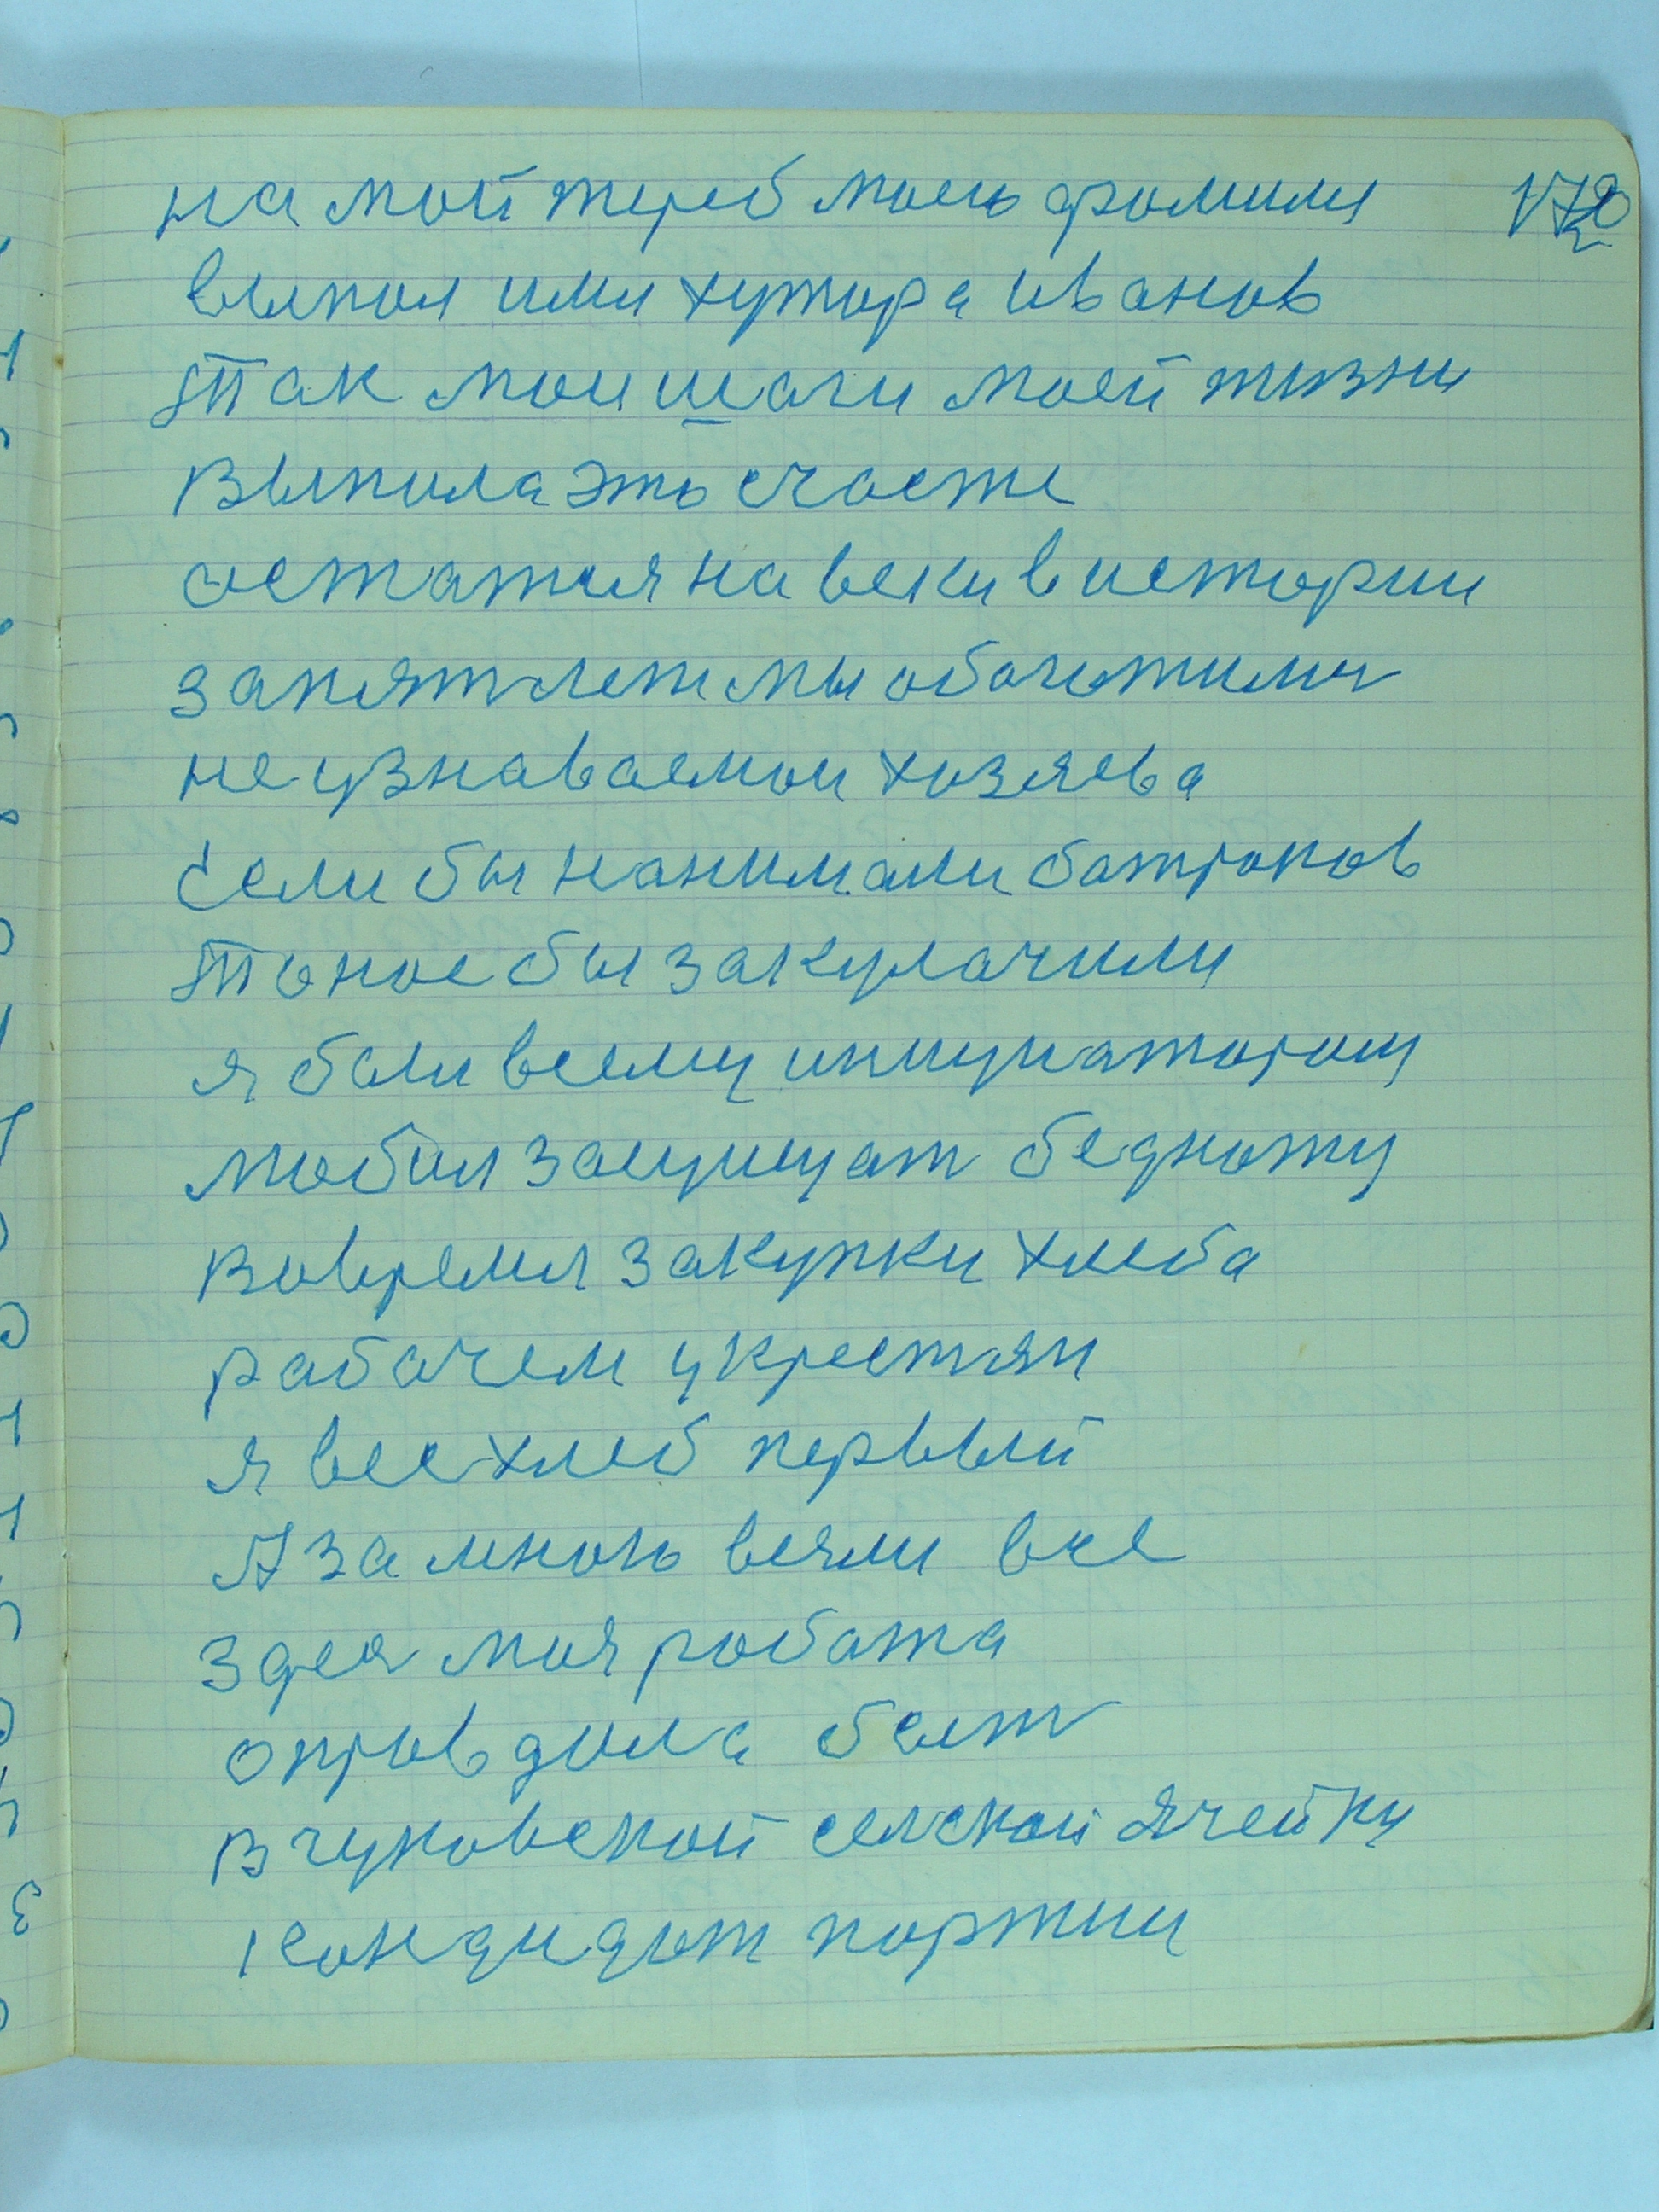 на мой жреб моею фомиля 172
выпол имя хутора иванов
Так мои шаги моей жизни
Выпила это счасте
остатся на веки в истории
за пят лет мы обогатилис
не узноваемои хозяева
Если бы нанимали батроков
То нос бы закулачили
я бил всему
любил защищат бедноту
Вовремя закупки хлеба
рабочем у крестян
я вес хлеб первый
А за мною везли все
здес моя робота
опровдила бат
в чуковской селской ячейку
кондидот портии